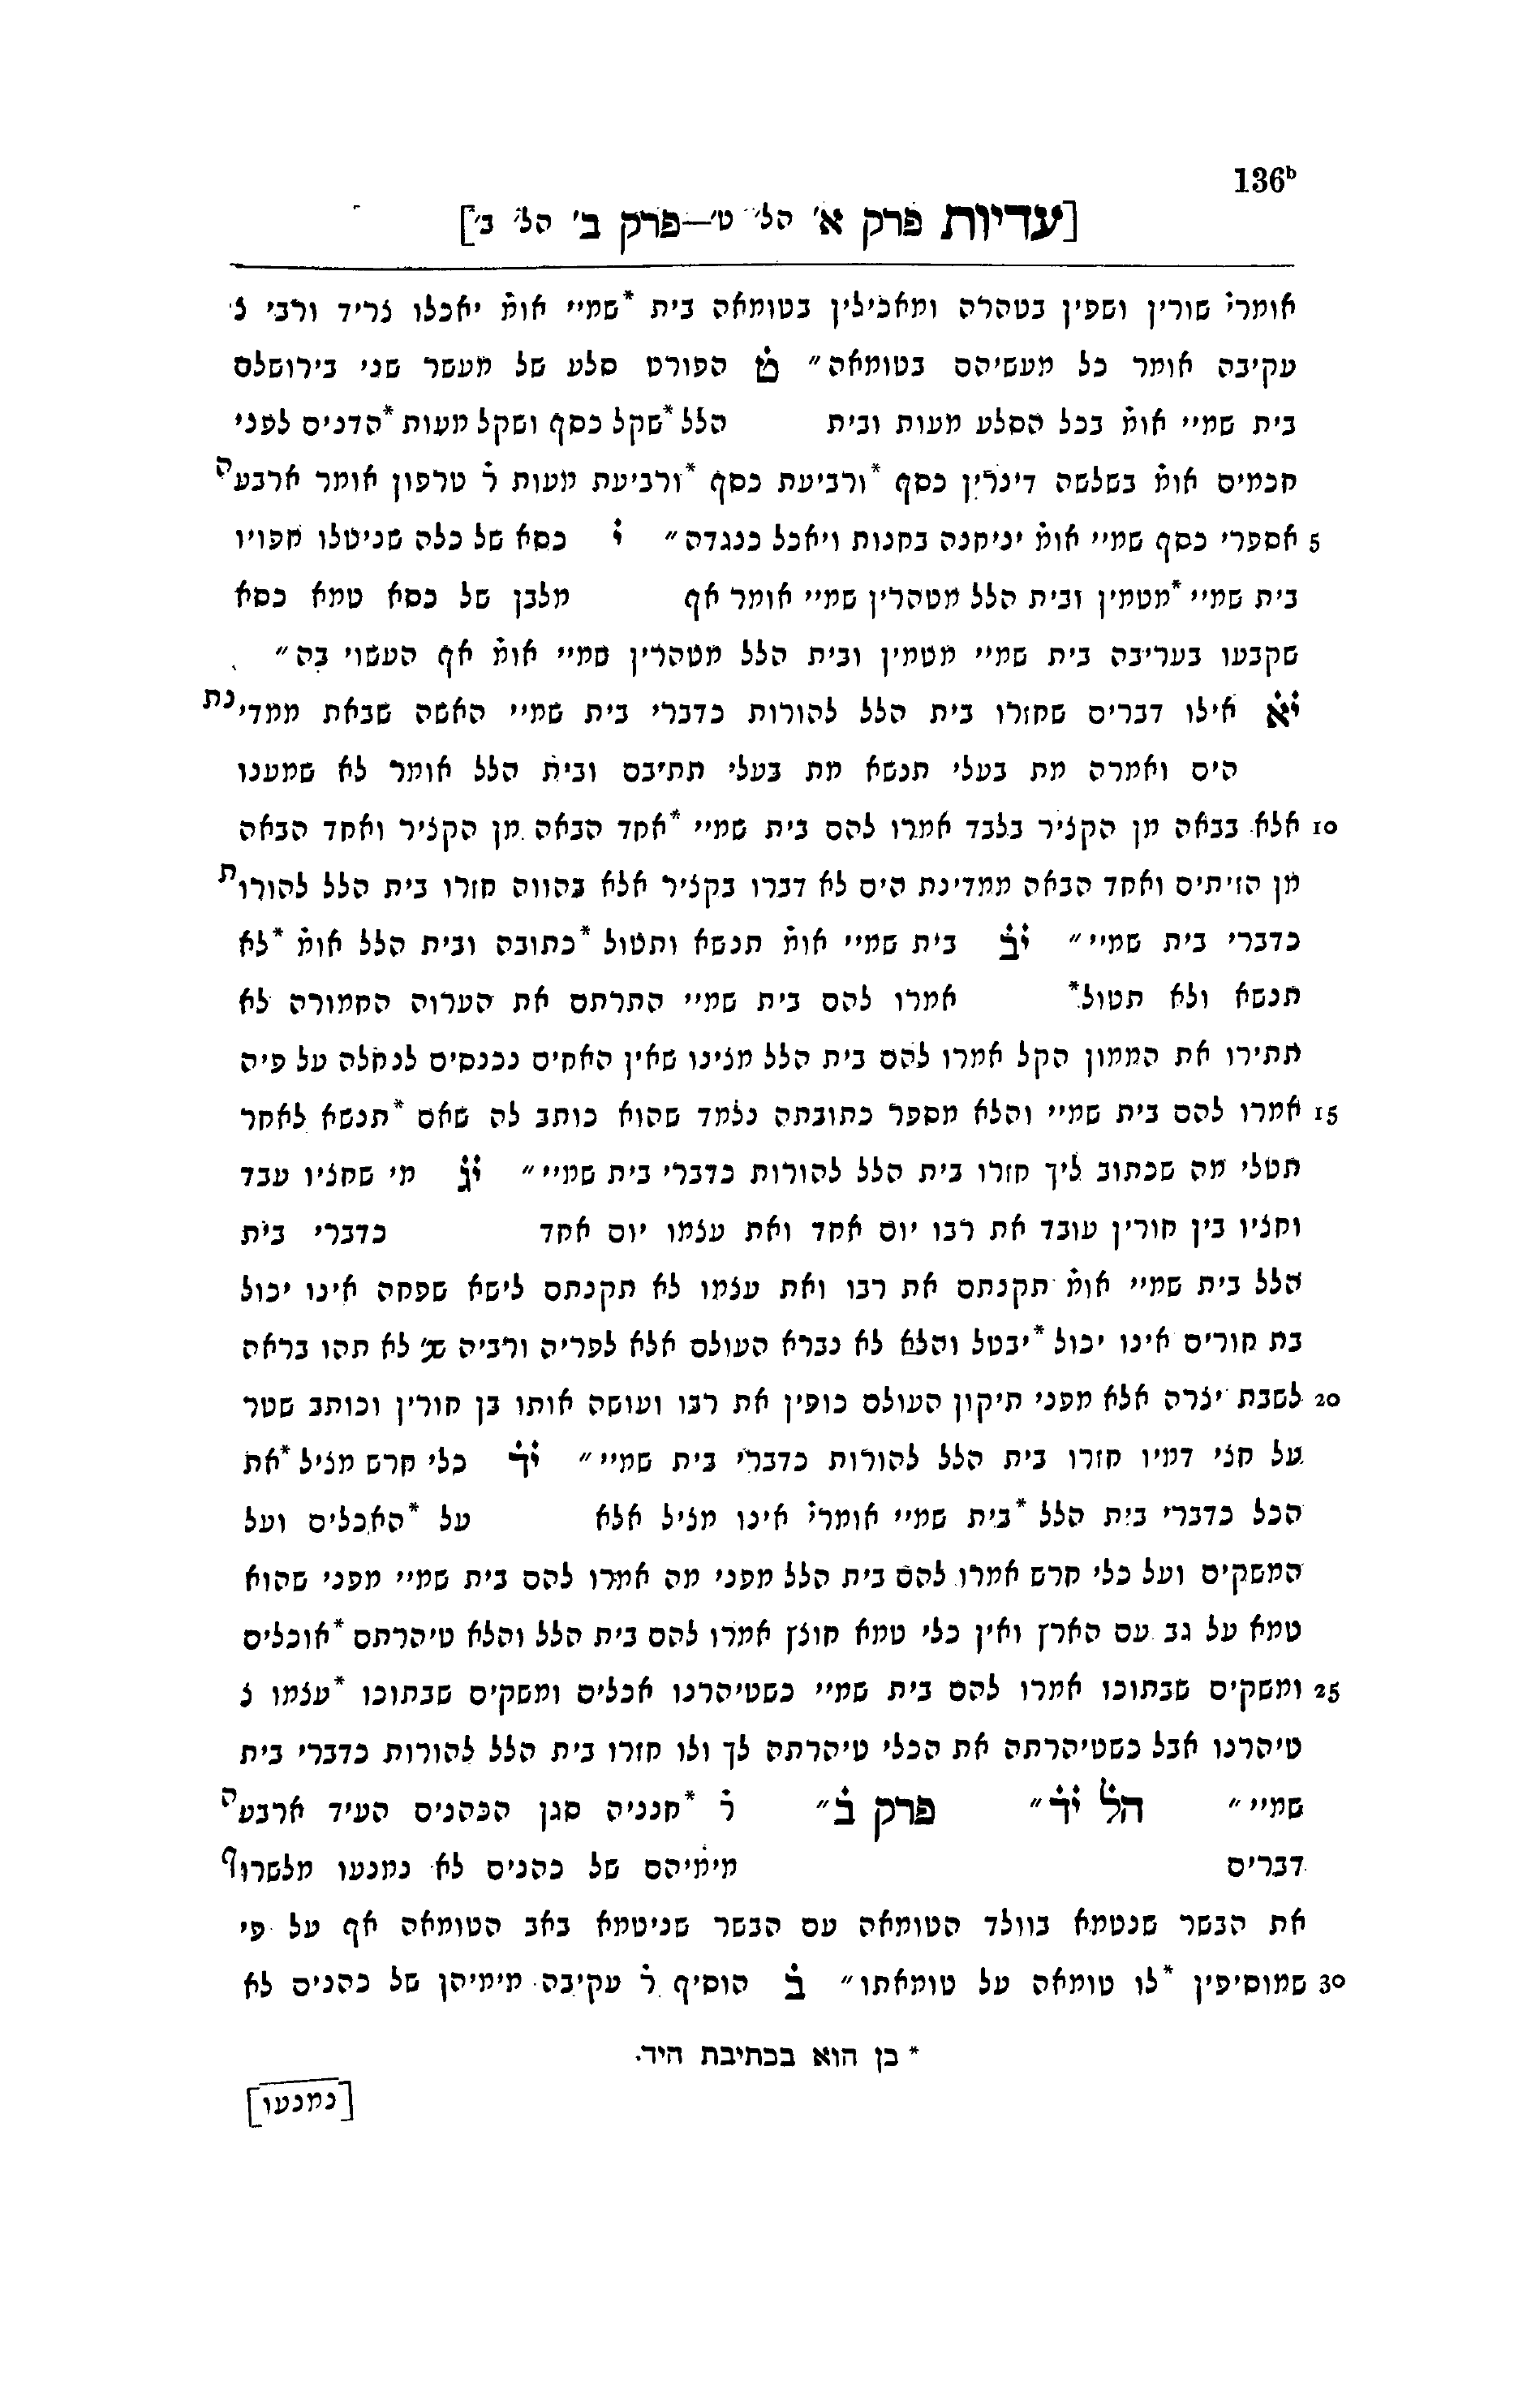 136ᵇ
[עדיות פרק א׳ הל׳ ט׳—פרק ב׳ הל׳ ב׳]
אומרי̇ שורין ושפין בטהרה ומאכילין בטומאה בית *שמיי אומ̇ יאכלו צריד ורבי צ
עקיבה אומר כל מעשיהם בטומאה״ ט̇ הפורט סלע של מעשר שני בירושלם
בית שמיי אומ̇ בכל הסלע מעות ובית הלל *שקל כסף ושקל מעות *הדנים לפני
חכמים אומ̇ בשלשה דינרין כסף *ורביעת כסף *ורביעת מעות ר̇ טרפון אומר ארבעה
5 אספרי כסף שמיי אומ̇ יניחנה בחנות ויאכל כנגדה״ י̇ כסא של כלה שניטלו חפויו
בית שמיי *מטמין ובית הלל מטהרין שמיי אומר אף מלבן של כסא טמא כסא
שקבעו בעריבה בית שמיי מטמין ובית הלל מטהרין שמיי אומ̇ אף העשוי בה״
י̇א̇ אילו דברים שחזרו בית הלל להורות כדברי בית שמיי האשה שבאת ממדינת
הים ואמרה מת בעלי תנשא מת בעלי תתיבם ובית הלל אומר לא שמענו
10 אלא בבאה מן הקציר בלבד אמרו להם בית שמיי *אחד הבאה מן הקציר ואחד הבאה
מן הזיתים ואחד הבאה ממדינת הים לא דברו בקציר אלא בהווה חזרו בית הלל להורות
כדברי בית שמיי״ י̇ב̇ בית שמיי אומ̇ תנשא ותטול *כתובה ובית הלל אומ̇ *לא
תנשא ולא תטול* אמרו להם בית שמיי התרתם את הערוה החמורה לא
תתירו את הממון הקל אמרו להם בית הלל מצינו שאין האחים נכנסים לנחלה על פיה
15 אמרו להם בית שמיי והלא מספר כתובתה נלמד שהוא כותב לה שאם *תנשא לאחר
תטלי מה שכתוב ליך חזרו בית הלל להורות כדברי בית שמיי״ י̇ג̇ מי שחציו עבד
וחציו בין חורין עובד את רבו יום אחד ואת עצמו יום אחד כדברי בית
הלל בית שמיי אומ̇ תקנתם את רבו ואת עצמו לא תקנתם לישא שפחה אינו יכול
בת חורים אינו יכול *יבטל והלא לא נברא העולם אלא לפריה ורביה שנ׳ לא תהו בראה
20 לשבת יצרה אלא מפני תיקון העולם כופין את רבו ועושה אותו בן חורין וכותב שטר
על חצי דמיו חזרו בית הלל להורות כדברי בית שמיי״ י̇ד̇ כלי חרש מציל *את
הכל כדברי בית הלל *בית שמיי אומרי̇ אינו מציל אלא על *האכלים ועל
המשקים ועל כלי חרש אמרו להם בית הלל מפני מה אמרו להם בית שמיי מפני שהוא
טמא על גב עם הארץ ואין כלי טמא חוצץ אמרו להם בית הלל והלא טיהרתם *אוכלים
25 ומשקים שבתוכו אמרו להם בית שמיי כשטיהרנו אכלים ומשקים שבתוכו *עצמו צ
טיהרנו אבל כשטיהרתה את הכלי טיהרתה לך ולו חזרו בית הלל להורות כדברי בית
שמיי״ הל̇ י̇ד̇״ פרק ב̇״ ר̇ *חנניה סגן הכהנים העיד ארבעה
דברים מימיהם של כהנים לא נמנעו מלשרוף
את הבשר שנטמא בוולד הטומאה עם הבשר שניטמא באב הטומאה אף על פי
30 שמוסיפין *לו טומאה על טומאתו״ ב̇ הוסיף ר̇ עקיבה מימיהן של כהנים לא
* כן הוא בכתיבת היד.
[נמנעו]